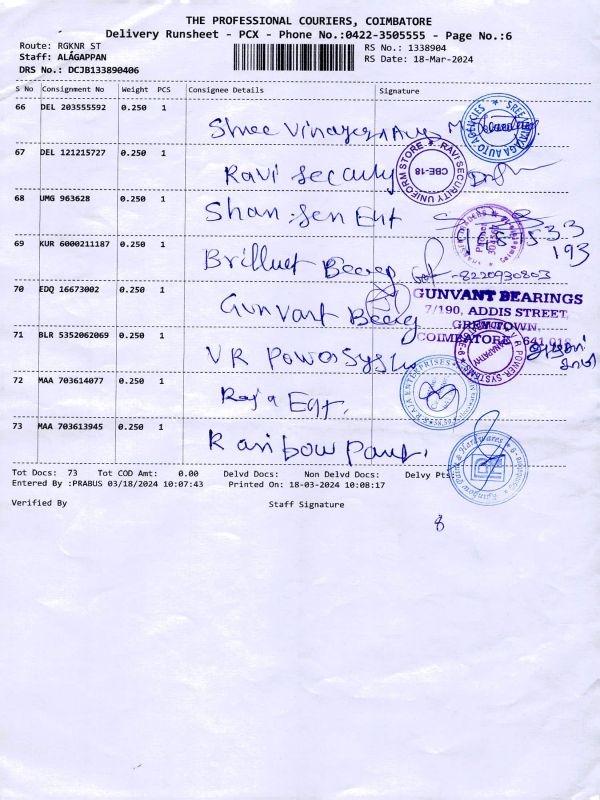 THE PROFESSIONAL COURIERS, COIMBATORE
Delivery Runsheet - PCX - Phone No.:0422-3505555 - Page No.:6
Route: RGKNR ST RS No.: 1338904
Staff: ALAGAPPAN RS Date: 18-Mar-2024
DRS No.: DCJB133890406
S No Consignment No Weight PCS Consignee Details Signature
66 DEL 203555592 0.250 1
Shree Vinayaga
SREE VINAYAGA AUTO AGENCIES
67 DEL 121215727 0.250 1
Ravi Security
RAVI SECURITY UNIFORM STORE
CBE-18
68 UMG 963628 0.250 1
Shan Sen Ent
193
69 KUR 6000211187 0.250 1
Brilluet Beereg
-8220930803
70 EDQ 16673002 0.250 1
Gunvant Beerg
GUNVANT BEARINGS
7/190, ADDIS STREET,
GREY TOWN,
COIMBATORE - 641 018
71 BLR 5352062069 0.250 1
VR Power System
V R POWER SYSTEMS
72 MAA 703614077 0.250 1
Raja Ent.
RAJA ENTERPRISES
73 MAA 703613945 0.250 1
Rainbow Paint.
Hardwares
Tot Docs: 73 Tot COD Amt: 0.00 Delvd Docs: Non Delvd Docs: Delvy Pts:
Entered By :PRABUS 03/18/2024 10:07:43 Printed On: 18-03-2024 10:08:17
Verified By Staff Signature
8